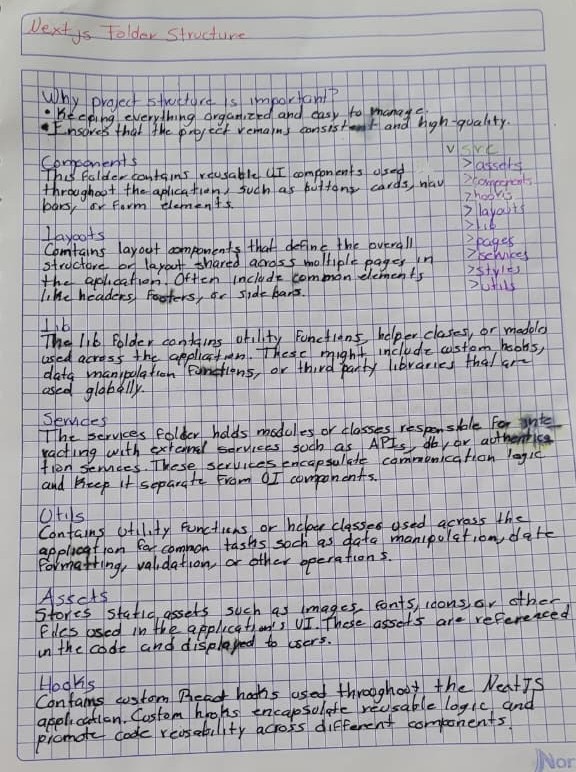 Nextjs Folder Structure
Why project structure is important?
• Keeping everything organized and easy to manage.
• Ensures that the project remains consistent and high-quality.
Components
This folder contains reusable UI components used
throughout the aplication, such as buttons, cards, nav
bars, or form elements.
v src
> assets
> components
> hooks
> layouts
> lib
> pages
> services
> styles
> utils
Layouts
Contains layout components that define the overall
structure or layout shared across multiple pages in
the aplication. Often include common elements
like headers, footers, or side bars.
Lib
The lib folder contains utility functions, helper clases, or modules
used across the application. These might include custom hooks,
data manipulation functions, or third party libraries that are
used globally.
Services
The services folder holds modules or classes responsible for inte
racting with external services such as APIs, db, or authentica
tion services. These services encapsulate communication logic
and keep it separate from UI components.
Utils
Contains utility functions or helper classes used across the
application for common tasks such as data manipulation, date
formatting, validation, or other operations.
Assets
Stores static assets such as images, fonts, icons, or other
files used in the application's UI. These assets are referenced
in the code and displayed to users.
Hooks
Contains custom React hooks used throughout the NextJS
application. Custom hooks encapsulate reusable logic, and
promote code reusability across different components.
Nor